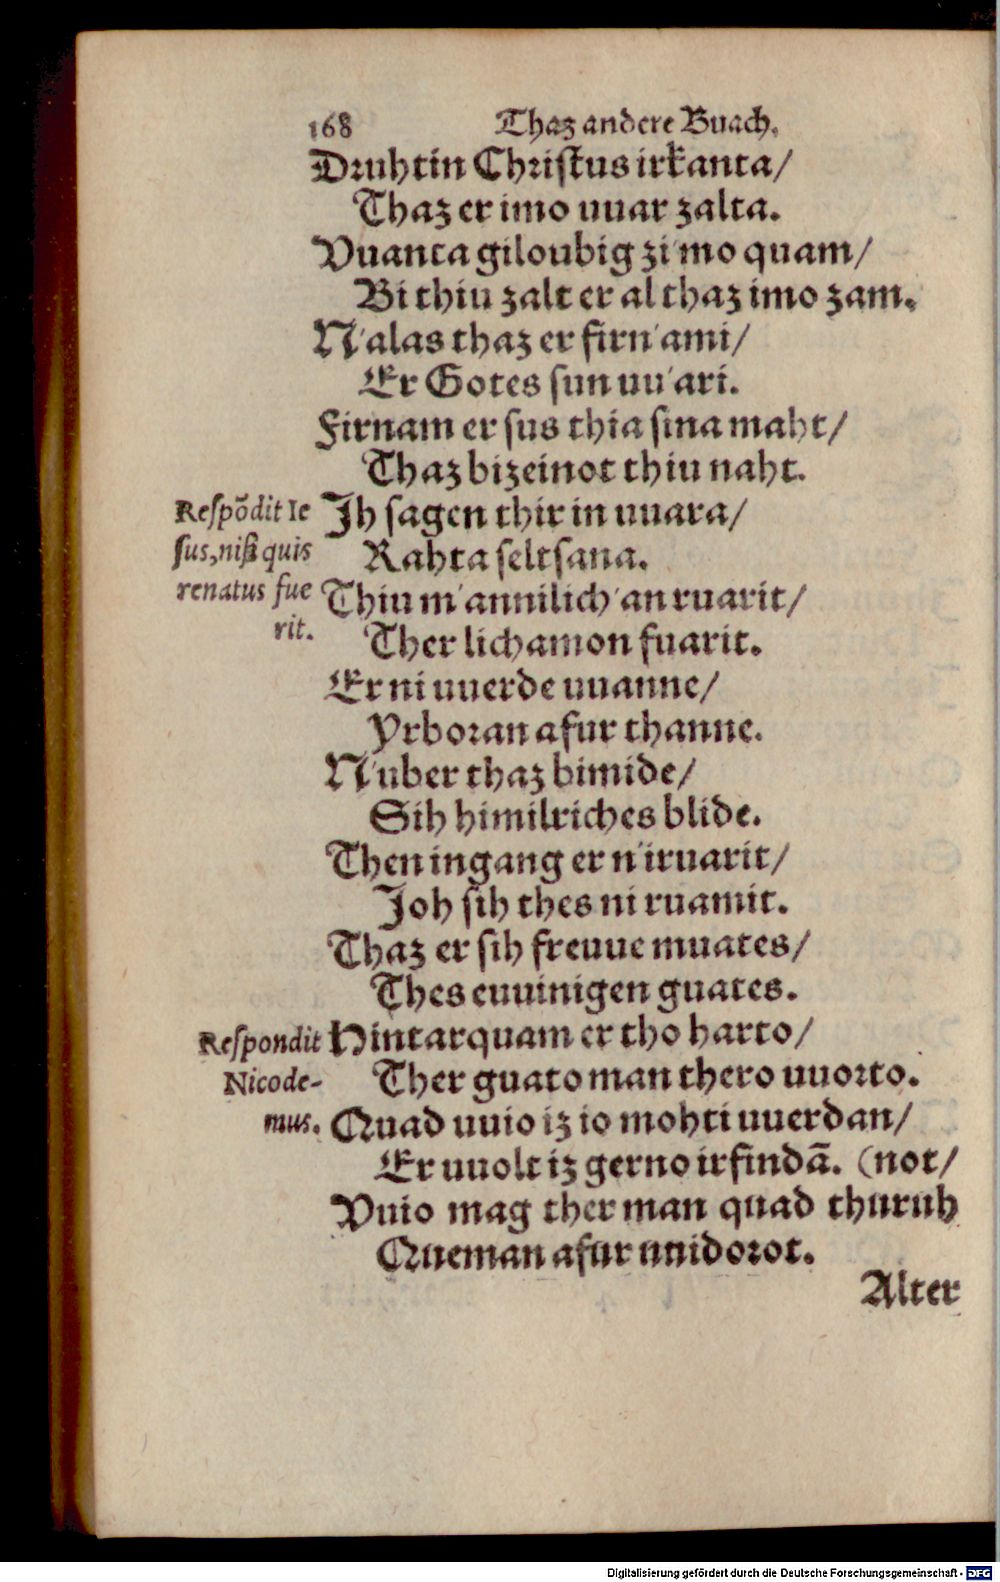 168 Thaz andere Buach.
Druhtin Christus irkanta/
Thaz er imo uuar zalta.
Vuanta giloubig zi'mo quam/
Bi thiu zalt er al thaz imo zam.
N'alas thaz er firn'ami/
Er Gotes sun uu'ari.
Firnam er sus thia sina maht/
Thaz bizeinot thiu naht.
Respõdit Ie
sus, nisi quis
renatus fue
rit.
Ih sagen thir in uuara/
Rahta seltsana.
Thiu m'annilich'an ruarit/
Ther lichamon fuarit.
Er ni uuerde uuanne/
Yrboran afur thanne.
N'uber thaz bimide/
Sih himilriches blide.
Then ingang er n'iruarit/
Joh sih thes ni ruamit.
Thaz er sih freuue muates/
Thes euuinigen guates.
Respondit
Nicode-
mus.
Hintarquam er tho harto/
Ther guato man thero uuorto.
Quad uuio iz io mohti uuerdan/
Er uuolt iz gerno irfindã. (not/
Vuio mag ther man quad thuruh
Queman afur uuidorot.
Alter
Digitalisierung gefördert durch die Deutsche Forschungsgemeinschaft - DFG